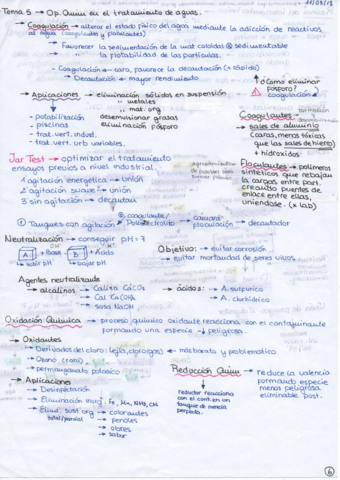 11/03/19
Tema 5 → Op. Quim en el tratamiento de aguas.
→ Coagulación → alterar el estado físico del agua mediante la adicción de reactivos,
al agua (coagulantes y floculantes)
Favorecer la sedimentación de la mat coloidal sedimentable
la flotabilidad de las partículas.
Coagulación ← caro, favorece la decantación (+ rápida)
Decantación ← mayor rendimiento
→ Aplicaciones → eliminación sólidos en suspensión
" metales
" mat. org
- potabilización
- piscinas
- trat. vert. indust.
- trat. vert. urb variables.
desemulsionar grasas
eliminación fósforo
¿Cómo eliminar
fósforo?
coagulación
Coagulantes
→ sales de aluminio
(caras, menos tóxicas
que las sales de hierro)
+ hidróxidos.
Jar Test → optimizar el tratamiento
ensayos previos a nivel industrial.
1 agitación energética → unión
2 agitación suave → unión
3 sin agitación → decantan
Floculantes → polímeros
sintéticos que rebajan
las cargas entre part.
creando puentes de
enlace entre ellas,
uniéndose (x lab)
① Tanques con agitación
coagulante/
Polielectrolito
cámara
floculación → decantador
Neutralización → conseguir pH = 7
A + Base B + Ácido
→ subir pH → bajar pH
Objetivo: → evitar corrosión
→ evitar mortalidad de seres vivos
Agentes neutralizante
→ alcalinos → Caliza CaCO₃
→ Cal Ca(OH)₂
→ Sosa NaOH
→ ácidos: → A. sulfúrico
→ A. clorhídrico
Oxidación Química → proceso químico oxidante reacciona con el contaminante
formando una especie - peligrosa.
→ Oxidantes
→ Derivados del cloro: lejía, cloro gas) ← más barato y problemático
→ Ozono (rara)
→ permanganato potásico
→ Aplicaciones
→ Desinfectación
→ Eliminación inorg: Fe, Mn, NH₃, CN
→ Elimi. sust org → colorantes
total/parcial → fenoles
→ olores
→ sabor
Reducción Quím → reduce la valencia
formando especie
menos peligrosa
eliminable post.
reductor reacciona
con el cont. en un
tanque de mezcla
perfecta.
6